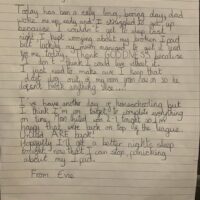 Today has been a really long, boring day, dad
woke me up early and I struggled to get up
because I couldn't get to sleep last
night. I kept worrying about my brother's ipad
but luckily my mum managed to get it fixed
for me today thank GOODNESS because
I don't think I could live without it.
I just need to make sure I keep that
door shut out of my room from now on so he
doesn't break anything else....

I've have another day of homeschooling but
I think I'm on target to complete everything
on time. Too tired when I taught so I'm
happy that we're back on top of the league.
United ARE back!
Hopefully I'll get a better nights sleep
tonight now that I can stop panicking
about my ipad.

From Evie